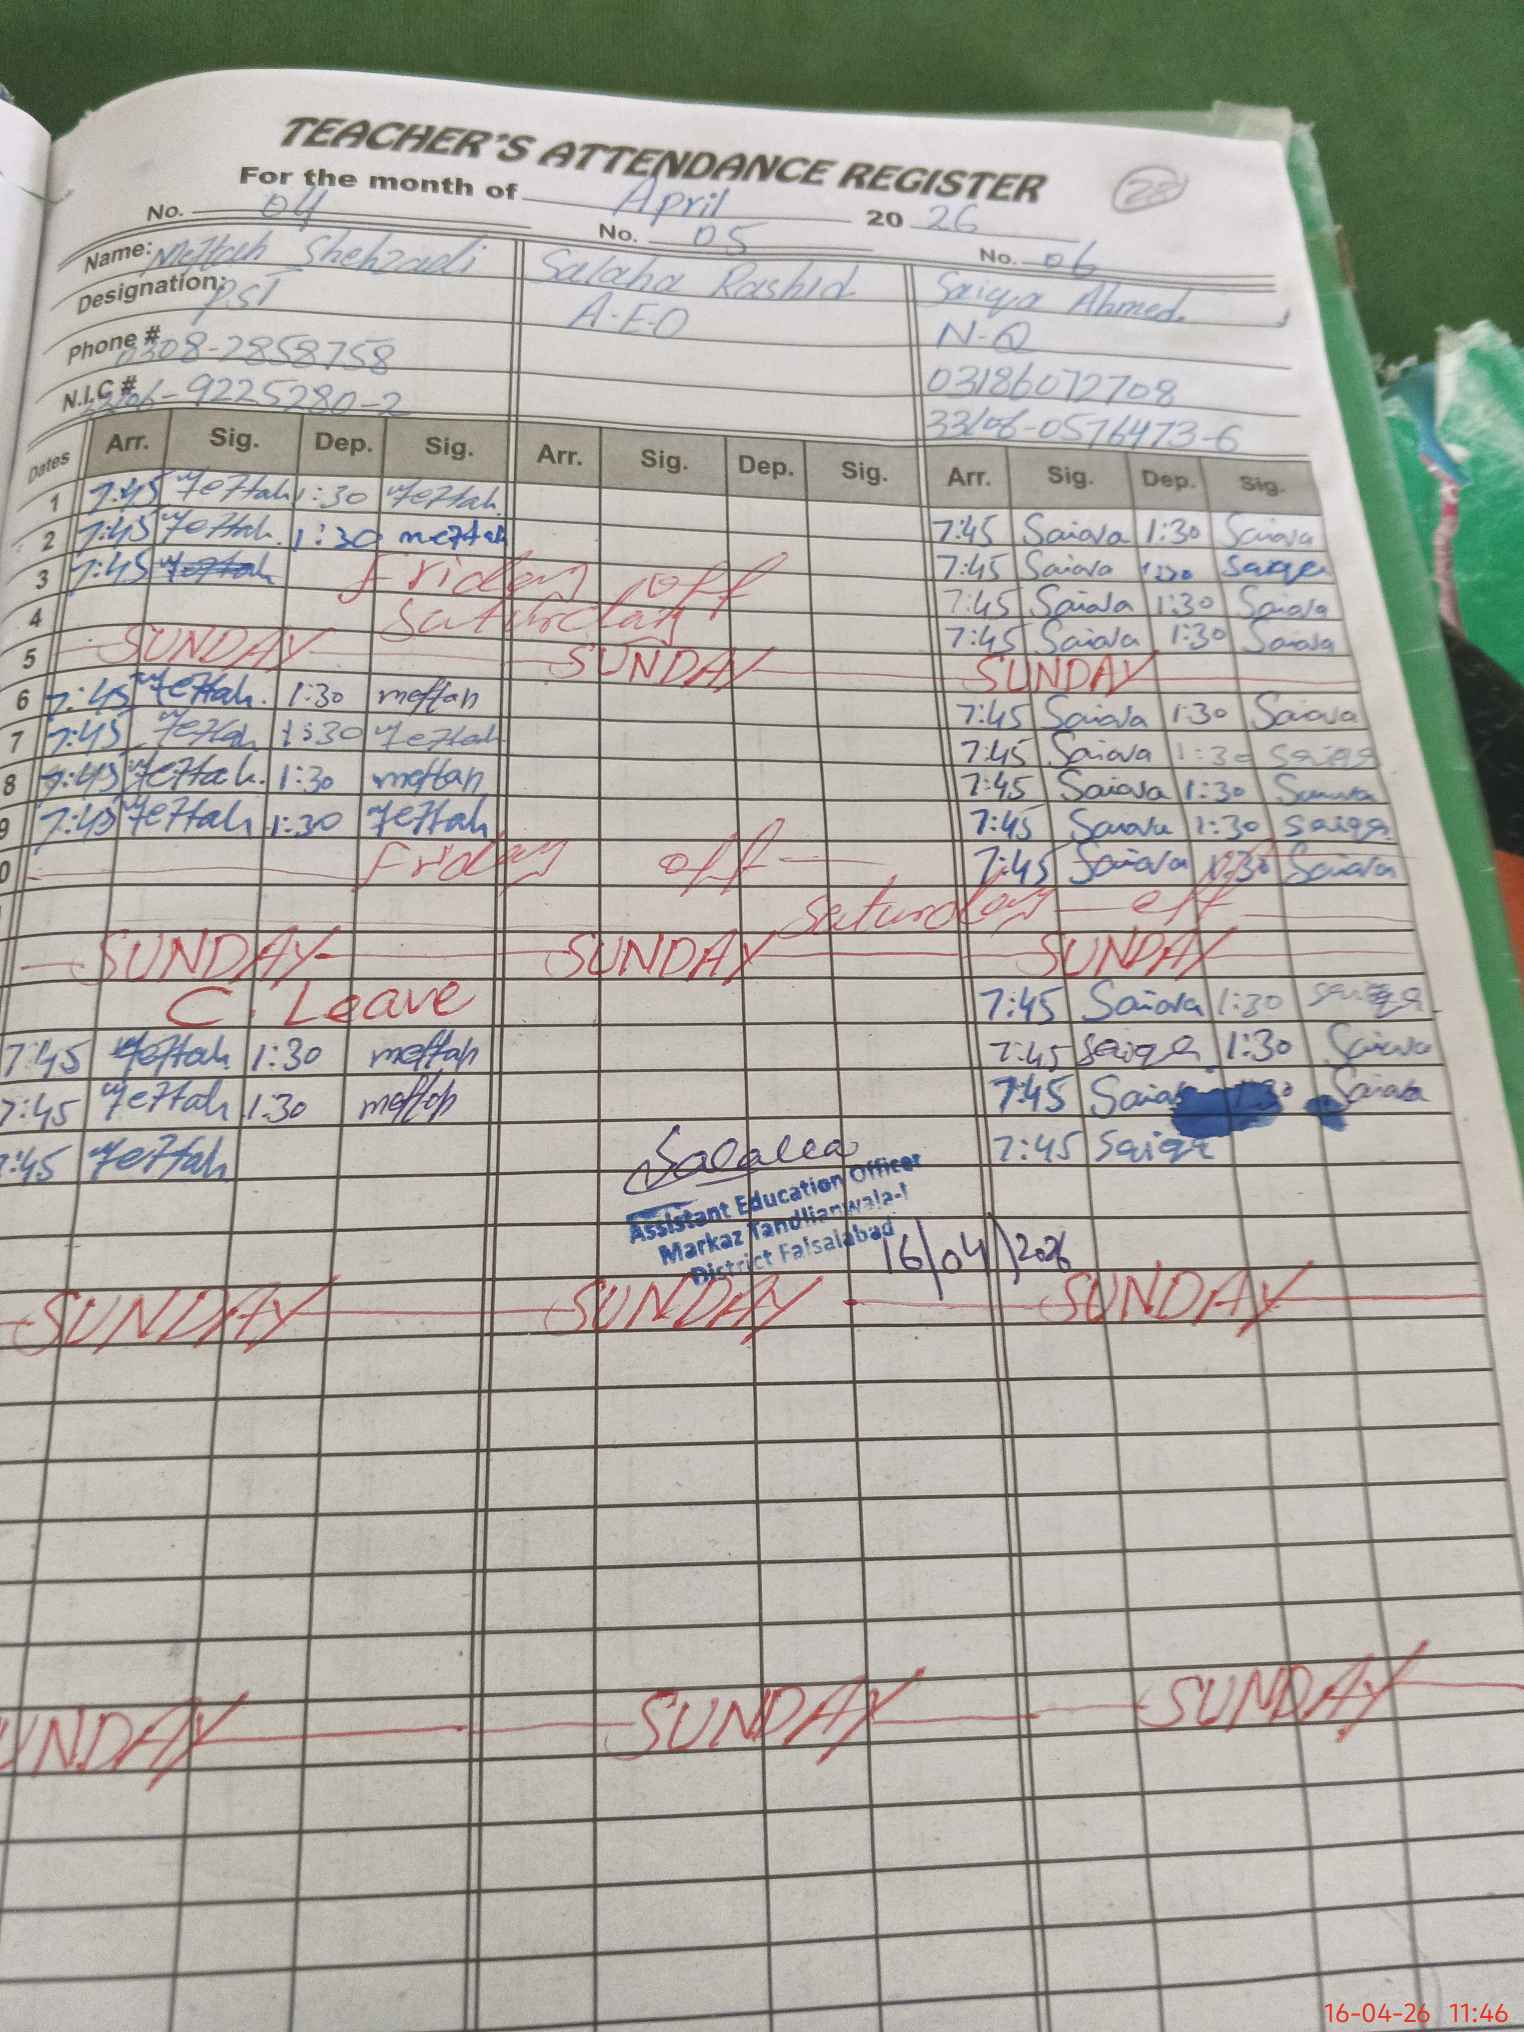 TEACHER'S ATTENDANCE REGISTER
28
For the month of April 2026
No. 04 No. 05 No. 06
Name: Meftah Shehzadi Salaha Rashid Saiqa Ahmed
Designation: PST A-E-O N-Q
Phone # 0308-2858758 03186072708
N.I.C # -9225280-2 33106-0576473-6
Dates Arr. Sig. Dep. Sig. Arr. Sig. Dep. Sig. Arr. Sig. Dep. Sig.
1 7:45 Meftah 1:30 Meftah 7:45 Saiqa 1:30 Saiqa
2 7:45 Meftah 1:30 meftah 7:45 Saiqa 1:30 Saiqa
3 7:45 Meftah Friday off 7:45 Saiqa 1:30 Saiqa
4 Saturday 7:45 Saiqa 1:30 Saiqa
5 SUNDAY SUNDAY SUNDAY
6 7:45 Meftah 1:30 meftah 7:45 Saiqa 1:30 Saiqa
7 7:45 Meftah 1:30 Meftah 7:45 Saiqa 1:30 Saiqa
8 7:45 Meftah 1:30 meftah 7:45 Saiqa 1:30 Saiqa
9 7:45 Meftah 1:30 Meftah 7:45 Saiqa 1:30 Saiqa
0 Friday off 7:45 Saiqa 1:30 Saiqa
Saturday off
SUNDAY SUNDAY SUNDAY
C. Leave 7:45 Saiqa 1:30 Saiqa
7:45 Meftah 1:30 meftah 7:45 Saiqa 1:30 Saiqa
7:45 Meftah 1:30 meftah 7:45 Saiqa Saiqa
7:45 Meftah 7:45 Saiqa
Assistant Education Officer
Markaz Tandlianwala-I
District Faisalabad
16/04/2026
SUNDAY SUNDAY SUNDAY
UNDAY SUNDAY SUNDAY
16-04-26 11:46